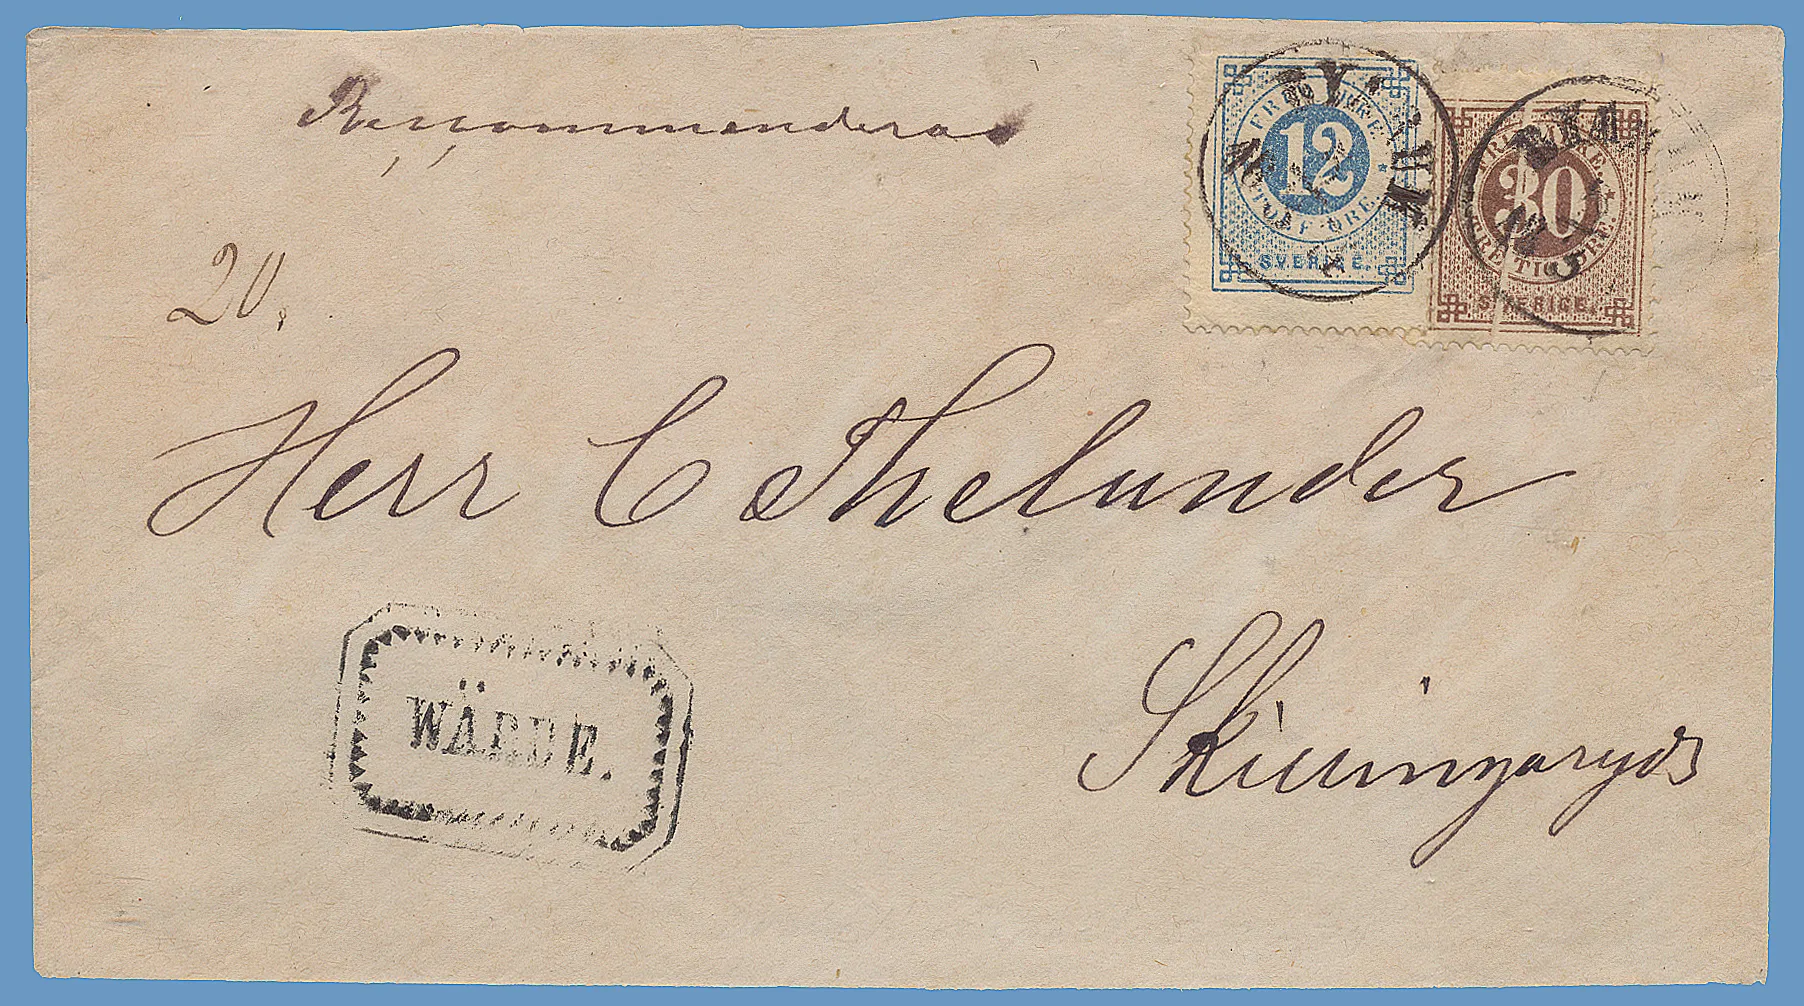 Recommenderas
20.
FRIMÄRKE
12
TOLF ÖRE
SVERIGE.
FRIMÄRKE.
30
TRETTIO ÖRE.
SVERIGE.
Herr C Thelander
WÄRDE.
Skillingaryds